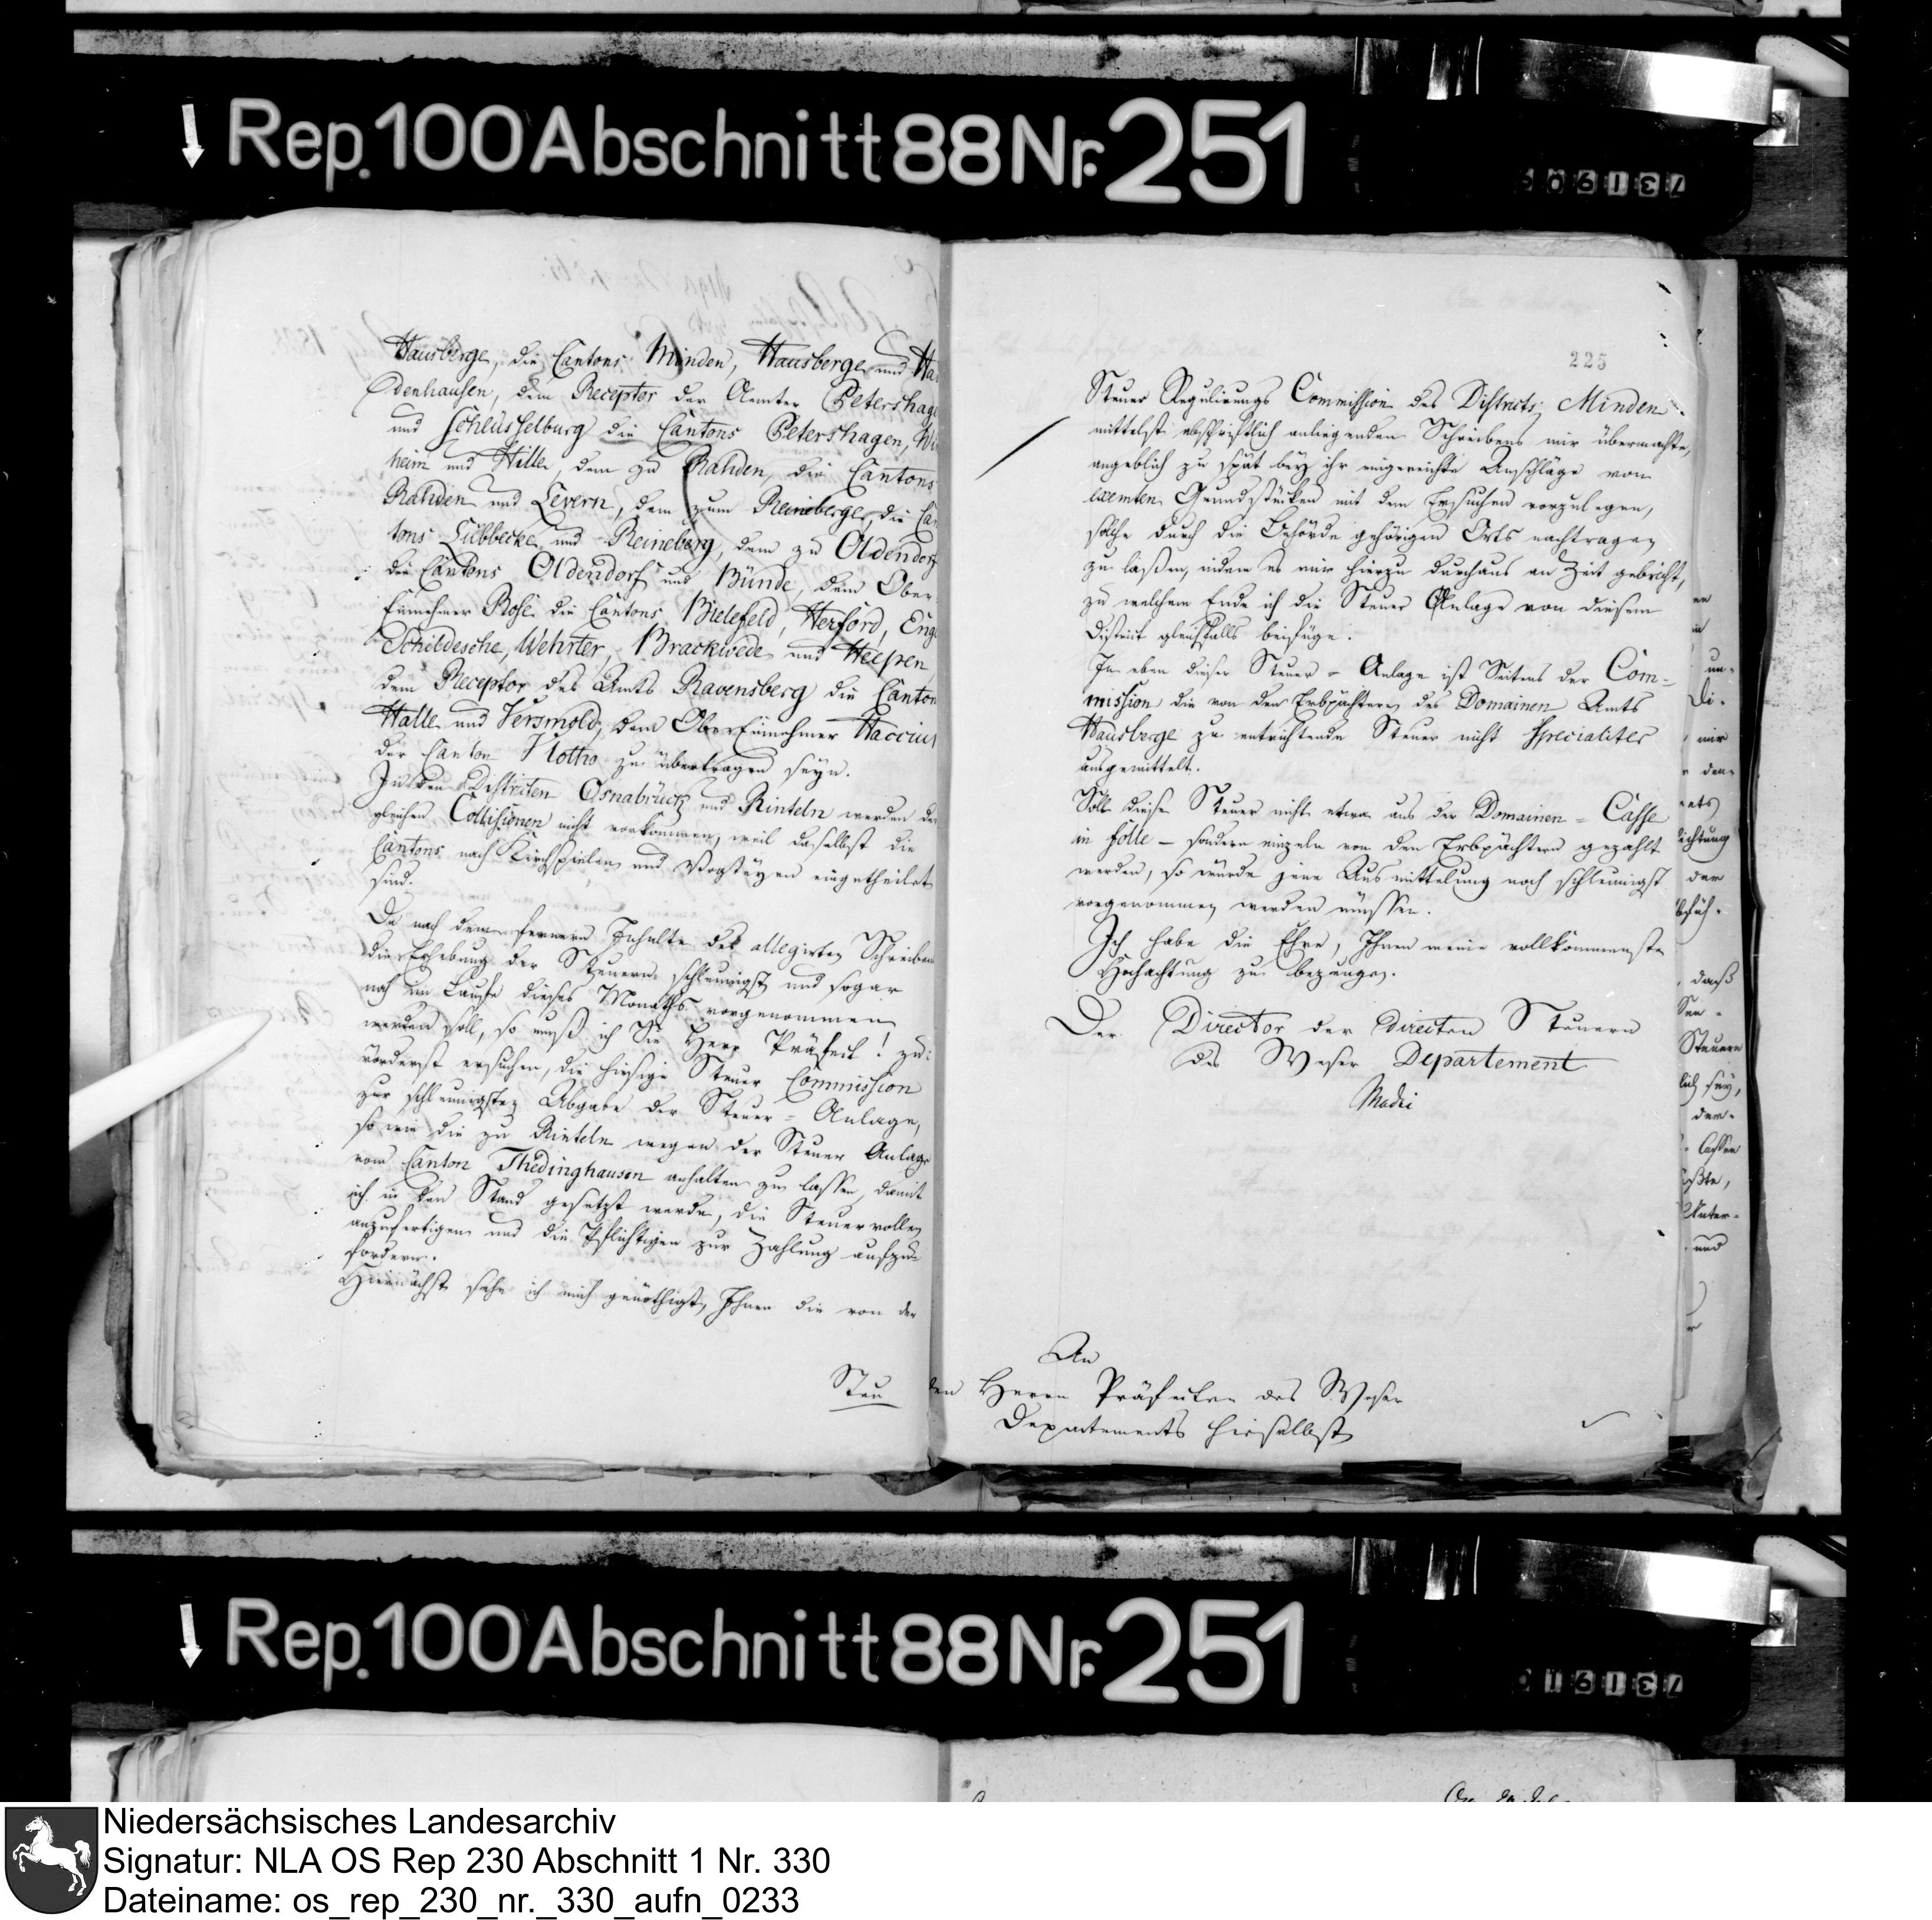 Rep. 100 Abschnitt 88 Nr. 251
731909
Hausberge, die Cantons Minden, Hausberge und Ha
denhausen, dem Receptor der Aemter Petershag
und Schlüsselburg die Cantons Petershagen, Wi
heim und Hille, dem zu Rahden, die Cantons
Rahden und Levern, dem zum Reineberge, die Can
tons Lübbecke und Reineberg, dem zu Oldendorf
die Cantons Oldendorf und Bünde, dem Ober
Einnehmer Rose die Cantons Bielefeld, Herford, Eng
Schildesche, Wehrter, Brackwede und Heepen
dem Receptor des Amts Ravensberg die Canton
Halle und Versmold, dem OberEinnehmer Haccius
der Canton Vlotho zu übertragen seyn.
In den Districten Osnabrück und Rinteln werden der
gleichen Collisionen nicht vorkommen, weil daselbst die
Cantons nach Kirchspielen und Vogteyen eingetheilet
sind.
Da nach dem fernern Inhalte des allegirten Schreiben
die Erhebung der Steuern schleunigst und sogar
noch im Laufe dieses Monaths vorgenommen
werden soll, so muß ich Sie Herr Präfect! zu-
vorderst ersuchen, die hiesige Steuer Commission
zur schleunigsten Abgabe der Steuer-Anlage,
so wie die zu Rinteln wegen der Steuer Anlage
vom Canton Thedinghausen anhalten zu lassen, damit
ich in den Stand gesetzt werde, die Steuerrollen
anzufertigen und die Pflichtigen zur Zahlung aufzu-
fordern.
Hiernächst sehe ich mich genöthigt, Ihnen die von der
Steu
225
Steuer Regulirungs Commission des Districts Minden
mittelst abschriftlich anliegenden Schreibens mir übermachte,
angeblich zu spät bey ihr eingereichte Anschläge von
exemten Grundstücken mit dem Ersuchen vorzulegen,
solche durch die Behörde gehörigen Orts nachtragen
zu laßen, indem es mir hierzu durchaus an Zeit gebricht,
zu welchem Ende ich die Steuer Anlage von diesem
District gleichfalls beifüge.
In eben dieser Steuer-Anlage ist Seitens der Com-
mission die von den Erbpächtern des Domainen Amts
Hausberge zu entrichtende Steuer nicht specialiter
ausgemittelt.
Soll diese Steuer nicht etwa aus der Domainen-Casse
in folle - sondern einzeln von den Erbpächtern gezahlt
werden, so würde jene Ausmittelung noch schleunigst
vorgenommen werden müssen.
Ich habe die Ehre, Ihnen meine vollkommenste
Hochachtung zu bezeugen.
Der Director der directen Steuern
des Weser Departement
An
den Herrn Präfecten des Weser
Departements hieselbst
un-
di-
mir
den-
ichtung
der
daß
Steuern
lich sey,
der-
lassen
Unter-
und
Rep. 100 Abschnitt 88 Nr. 251
731910
Niedersächsisches Landesarchiv
Signatur: NLA OS Rep 230 Abschnitt 1 Nr. 330
Dateiname: os_rep_230_nr._330_aufn_0233